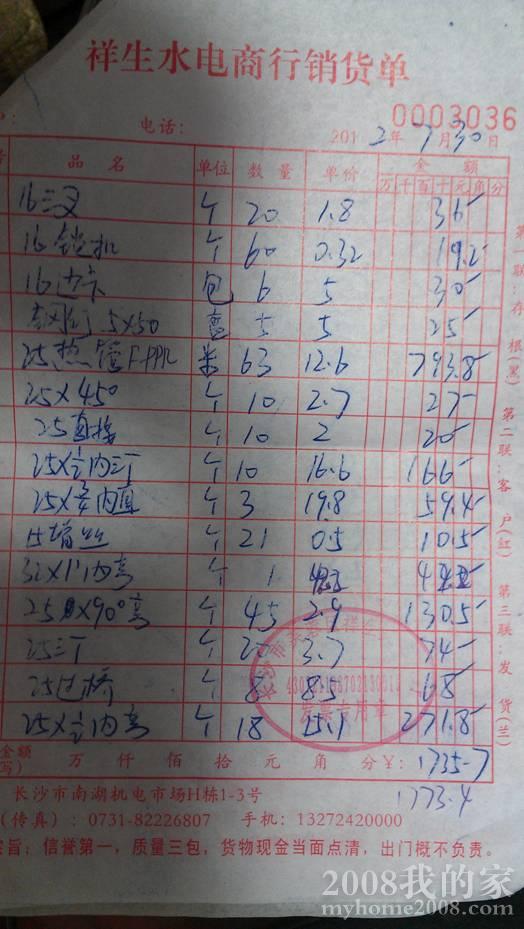 祥生水电商行销货单
0003036
电话: 2012年7月30日
品名 单位 数量 单价 金额
万千百十元角分
16三叉 个 20 1.8 36
16锁扣 个 60 0.32 19.2
16边卡 包 6 5 30
钢钉 .5×50 盒 5 5 25
25热管F-PPR 米 63 12.6 793.8
25×45° 个 10 2.7 27
25直接 个 10 2 20
25×½内三丁 个 10 16.6 166
25×¾内直 个 3 19.8 59.4
15增丝 个 21 0.5 10.5
32×1"内弯 个 1
25×90°弯 个 45 2.9 130.5
25三丁 个 20 3.7 74
25过桥 个 8 8.5 68
25×½内弯 个 18 15.1 271.8
金额 万仟佰拾元角分¥: 1735.7
写)
1773.4
长沙市南湖机电市场H栋1-3号
(传真): 0731-82226807 手机: 13272420000
宗旨: 信誉第一, 质量三包, 货物现金当面点清, 出门概不负责。
第一联:存根(黑) 第二联:客户(红) 第三联:发货(兰)
发票专用章
2008我的家
myhome2008.com